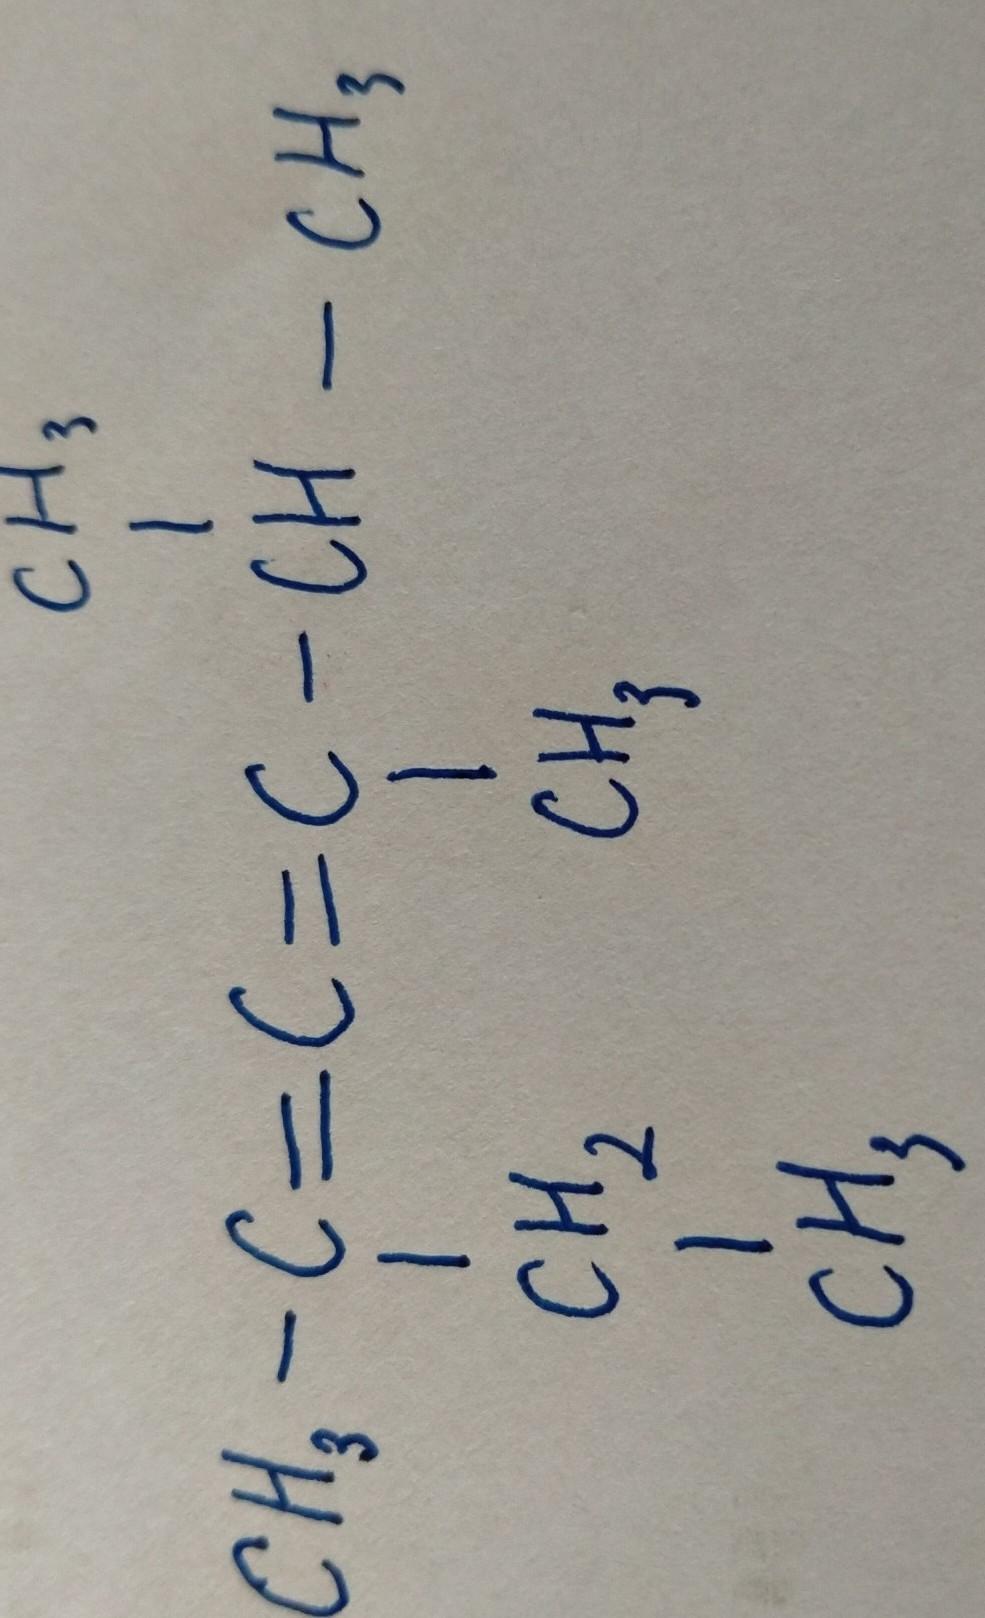 CH₃
CH₃ – C = C = C – CH – CH₃
CH₂ CH₃
CH₃